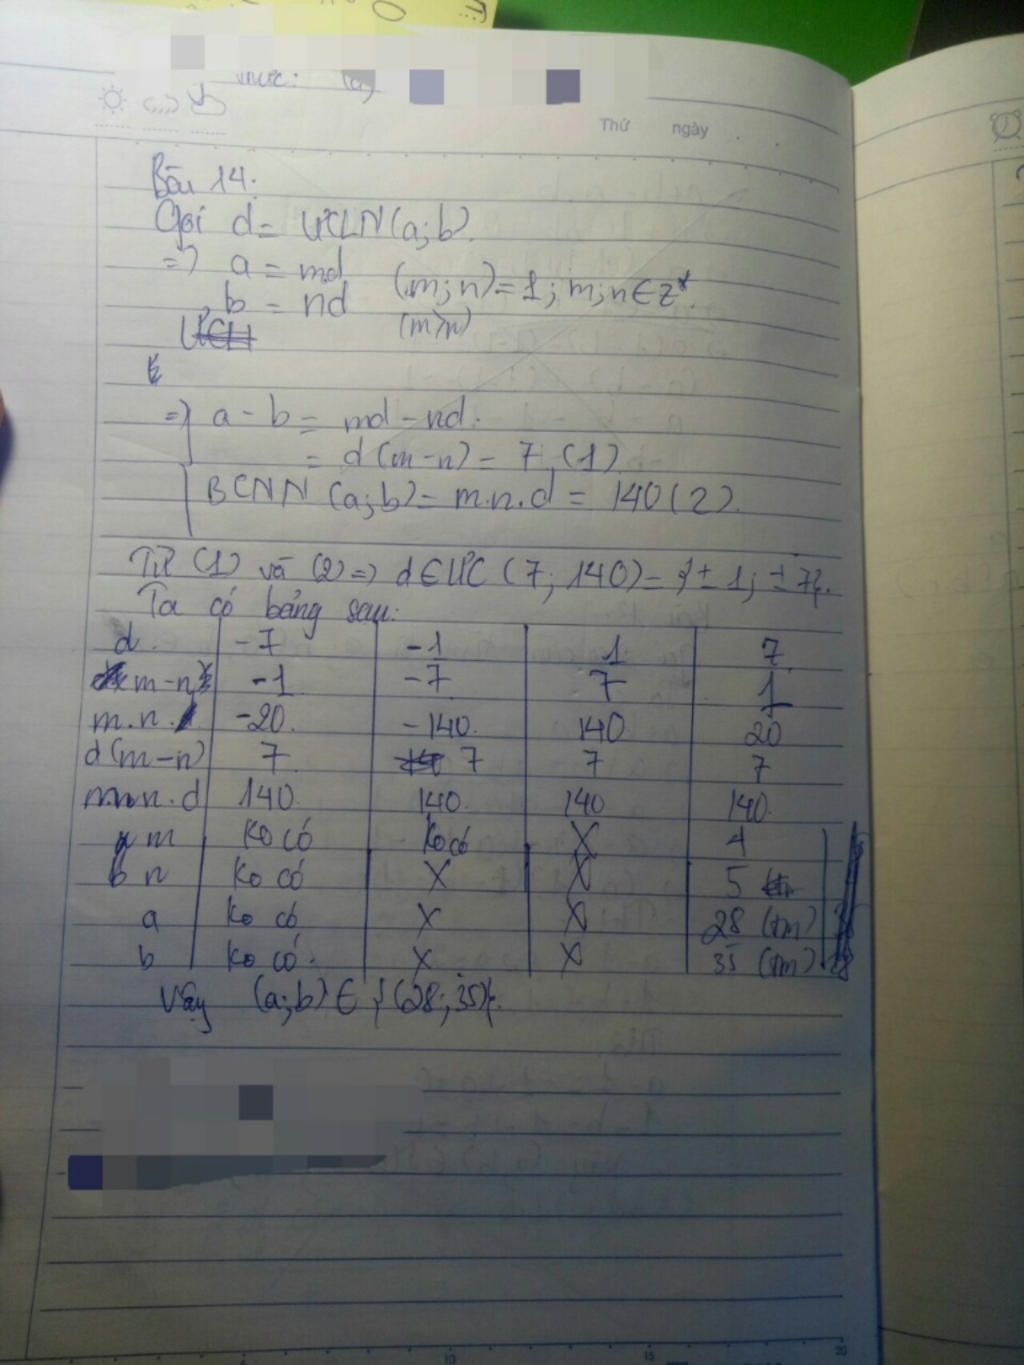 Thứ ngày
Bài 14:
Gọi d = ƯCLN(a;b).
=> a = md (m;n)=1; m;n ∈ Z*.
b = nd (m>n)
=> a - b = md - nd.
= d(m-n) = 7 (1)
BCNN (a;b) = m.n.d = 140 (2).
Từ (1) và (2) => d ∈ ƯC (7; 140) = {±1; ±7}.
Ta có bảng sau:
d. -7 -1 1 7
m-n -1 -7 7 1
m.n. -20. -140. 140 20
d(m-n) 7 7 7 7
m.n.d 140. 140. 140 140.
m ko có ko có X 4
n ko có X X 5
a ko có X X 28 (tm)
b ko có. X X 35 (tm)
Vậy (a;b) ∈ {(28;35)}.
10 15 20